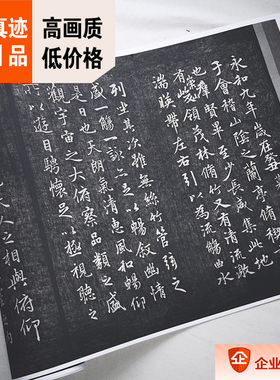 真迹
品
高画质
低价格
永和九年歲在癸丑暮
于會稽山陰之蘭亭脩
也羣賢畢至少長咸集此地
有崇領茂林脩竹又有清流激
湍暎帶左右引以為流觴曲水
列坐其次雖無絲竹管弦之
盛一觴一詠亦足以暢敘幽情
是日也天朗氣清惠風和暢仰
觀宇宙之大俯察品類之盛
以遊目騁懷足以極視聽之
夫人之相與俯仰
企
企业